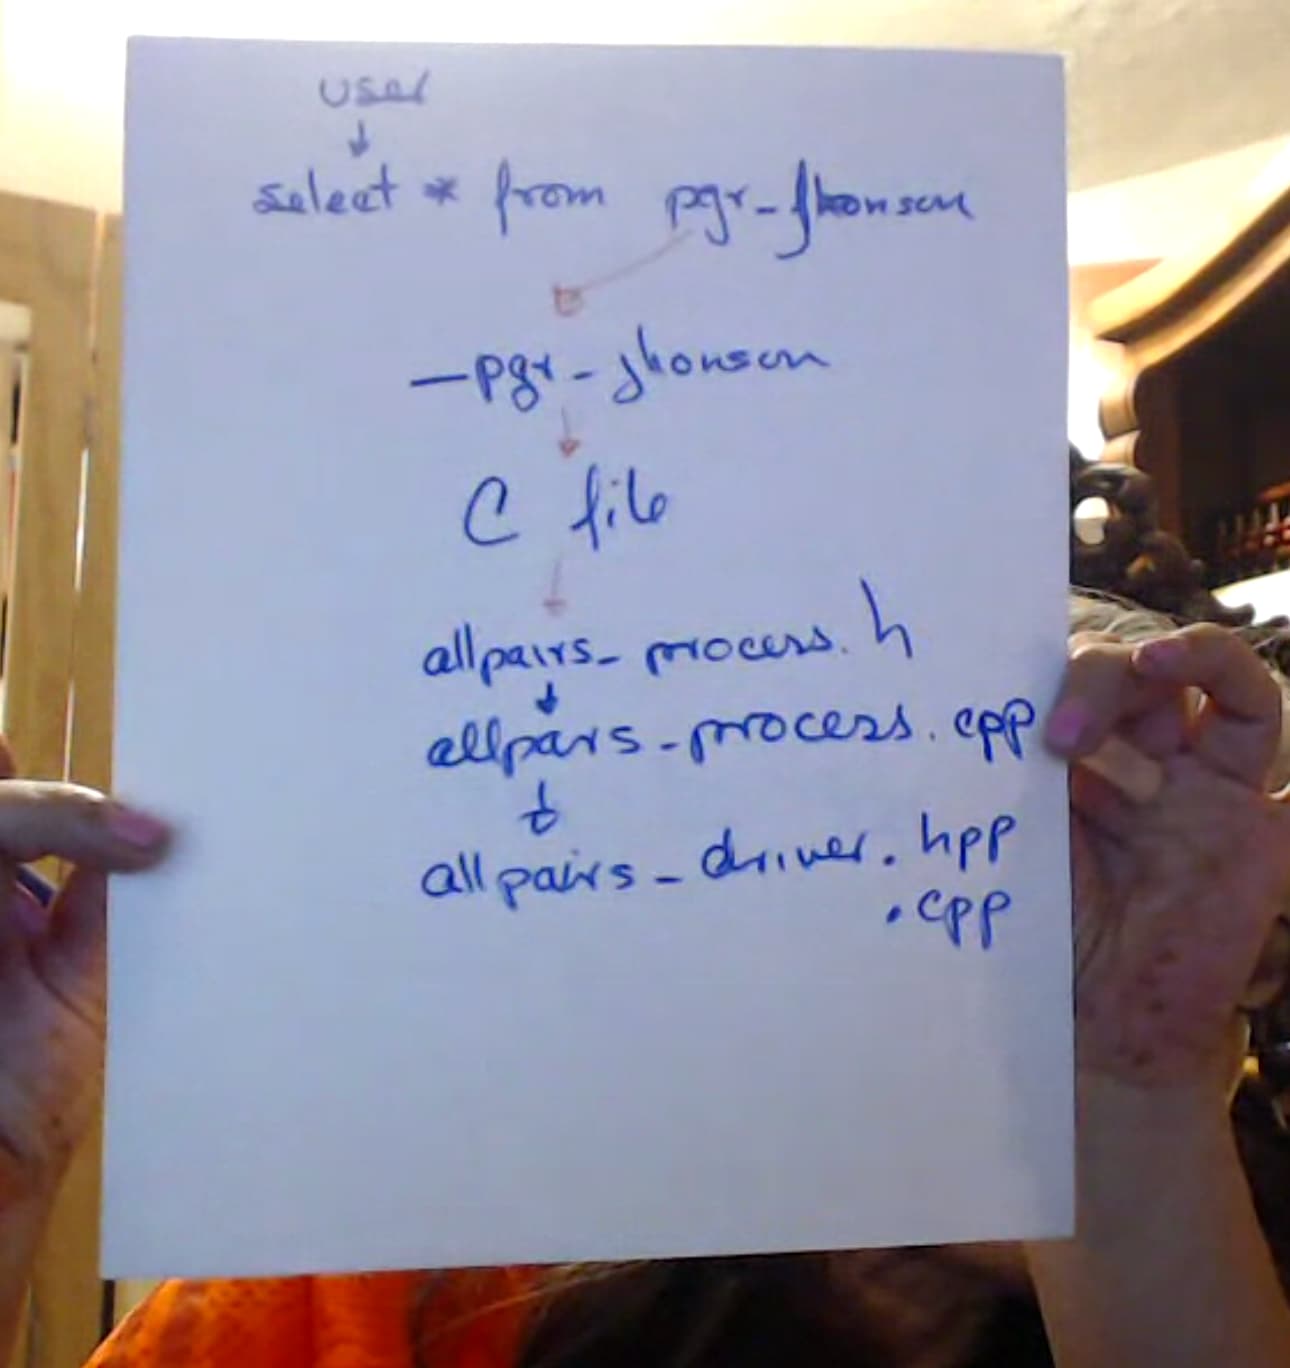 user
select * from pgr_jhonson
_pgr_jhonson
C file
allpairs_process.h
allpairs_process.cpp
allpairs_driver.hpp
.cpp